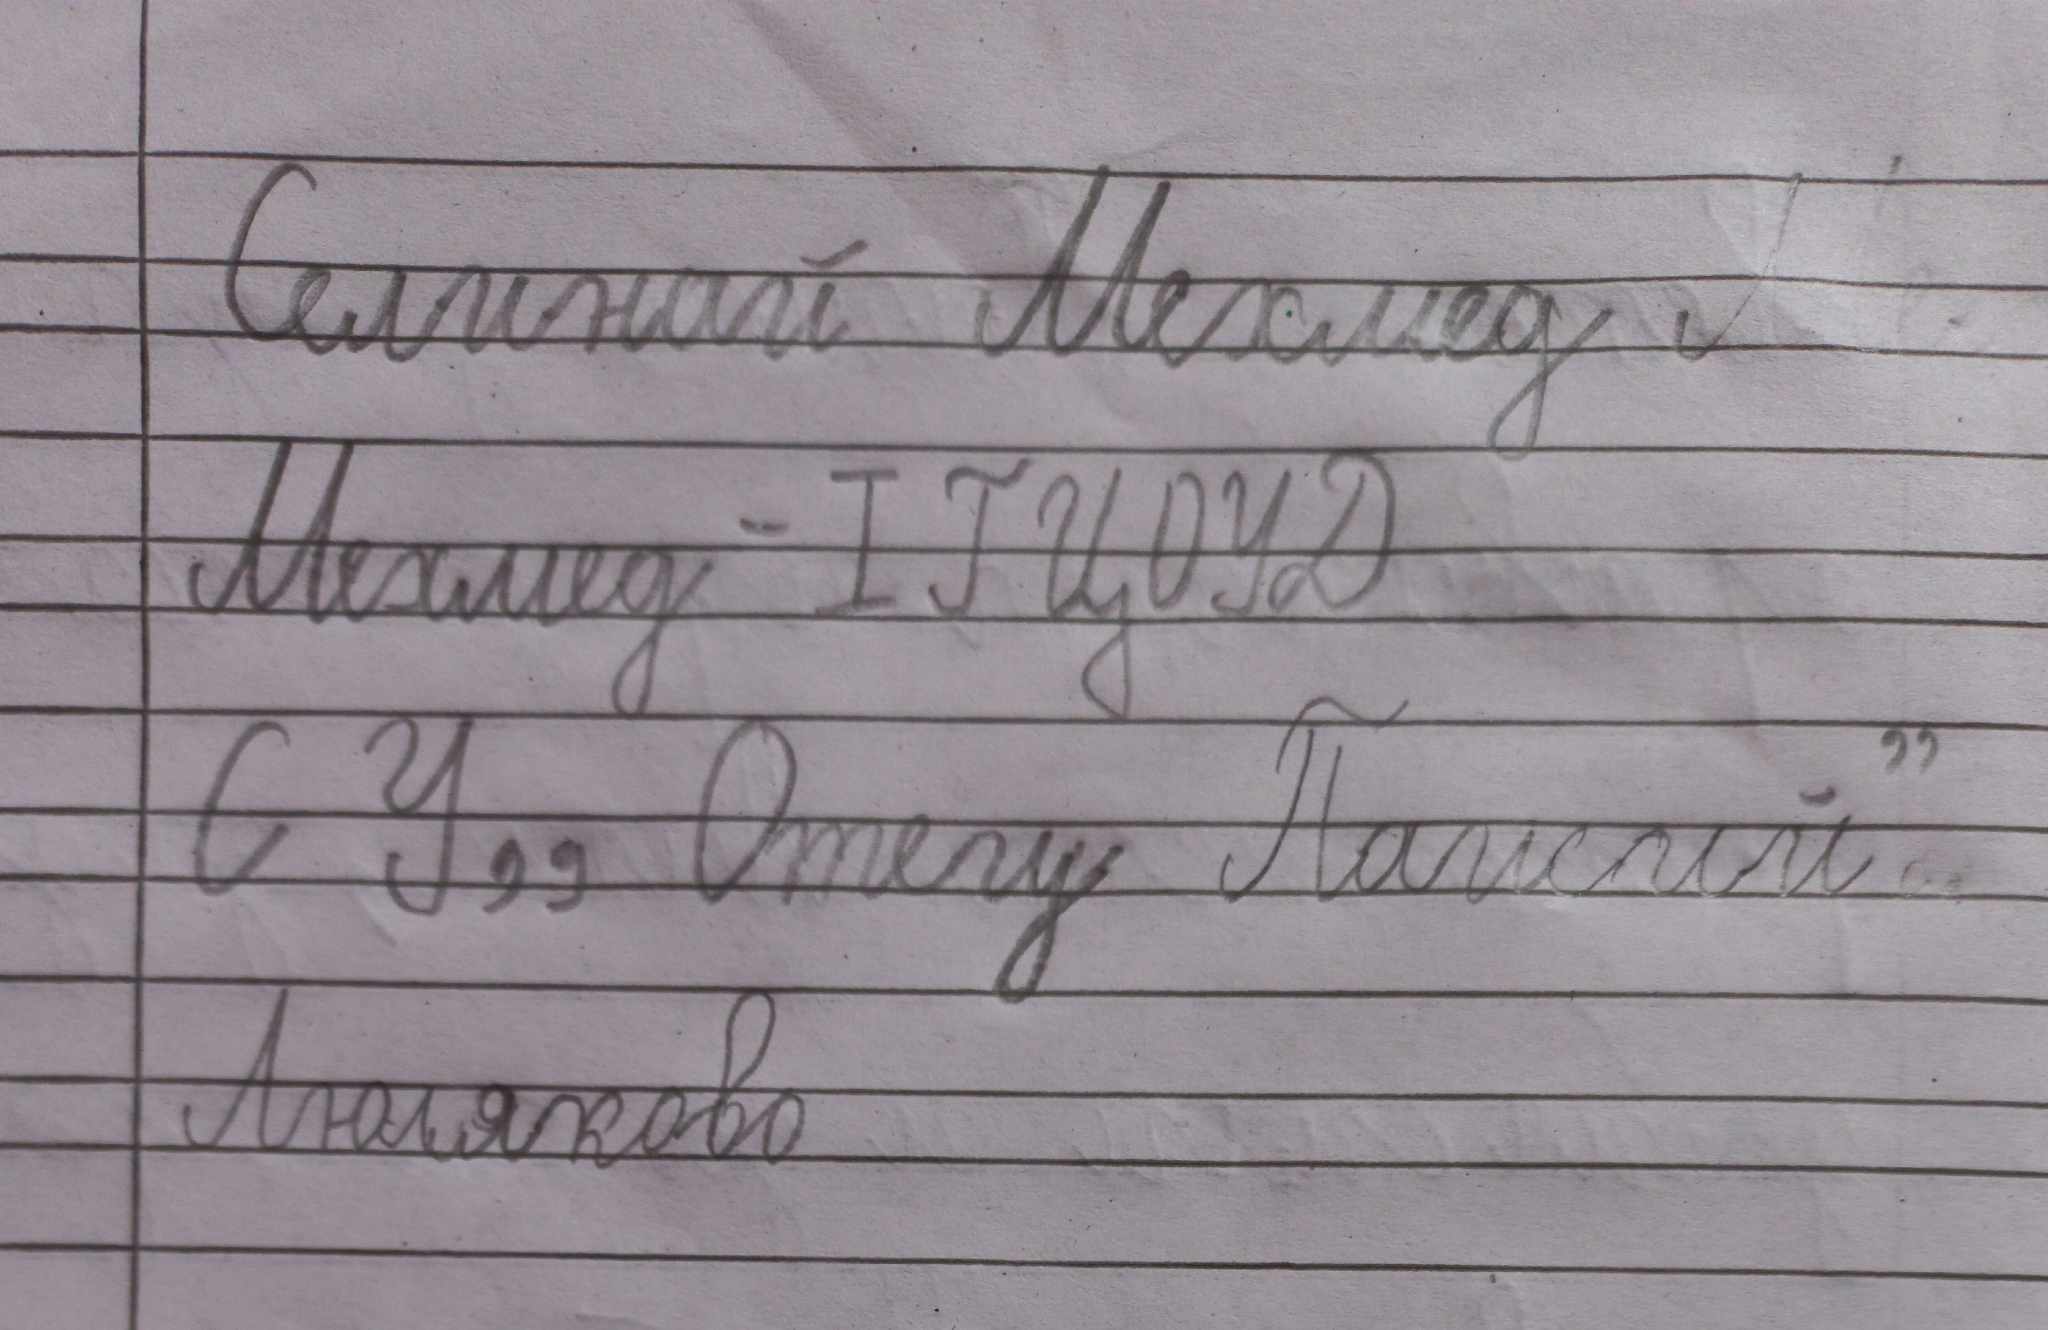 Селинай Мехмед
Мехмед - I ГЦОУД
СУ „Отец Паисий”
Люляково